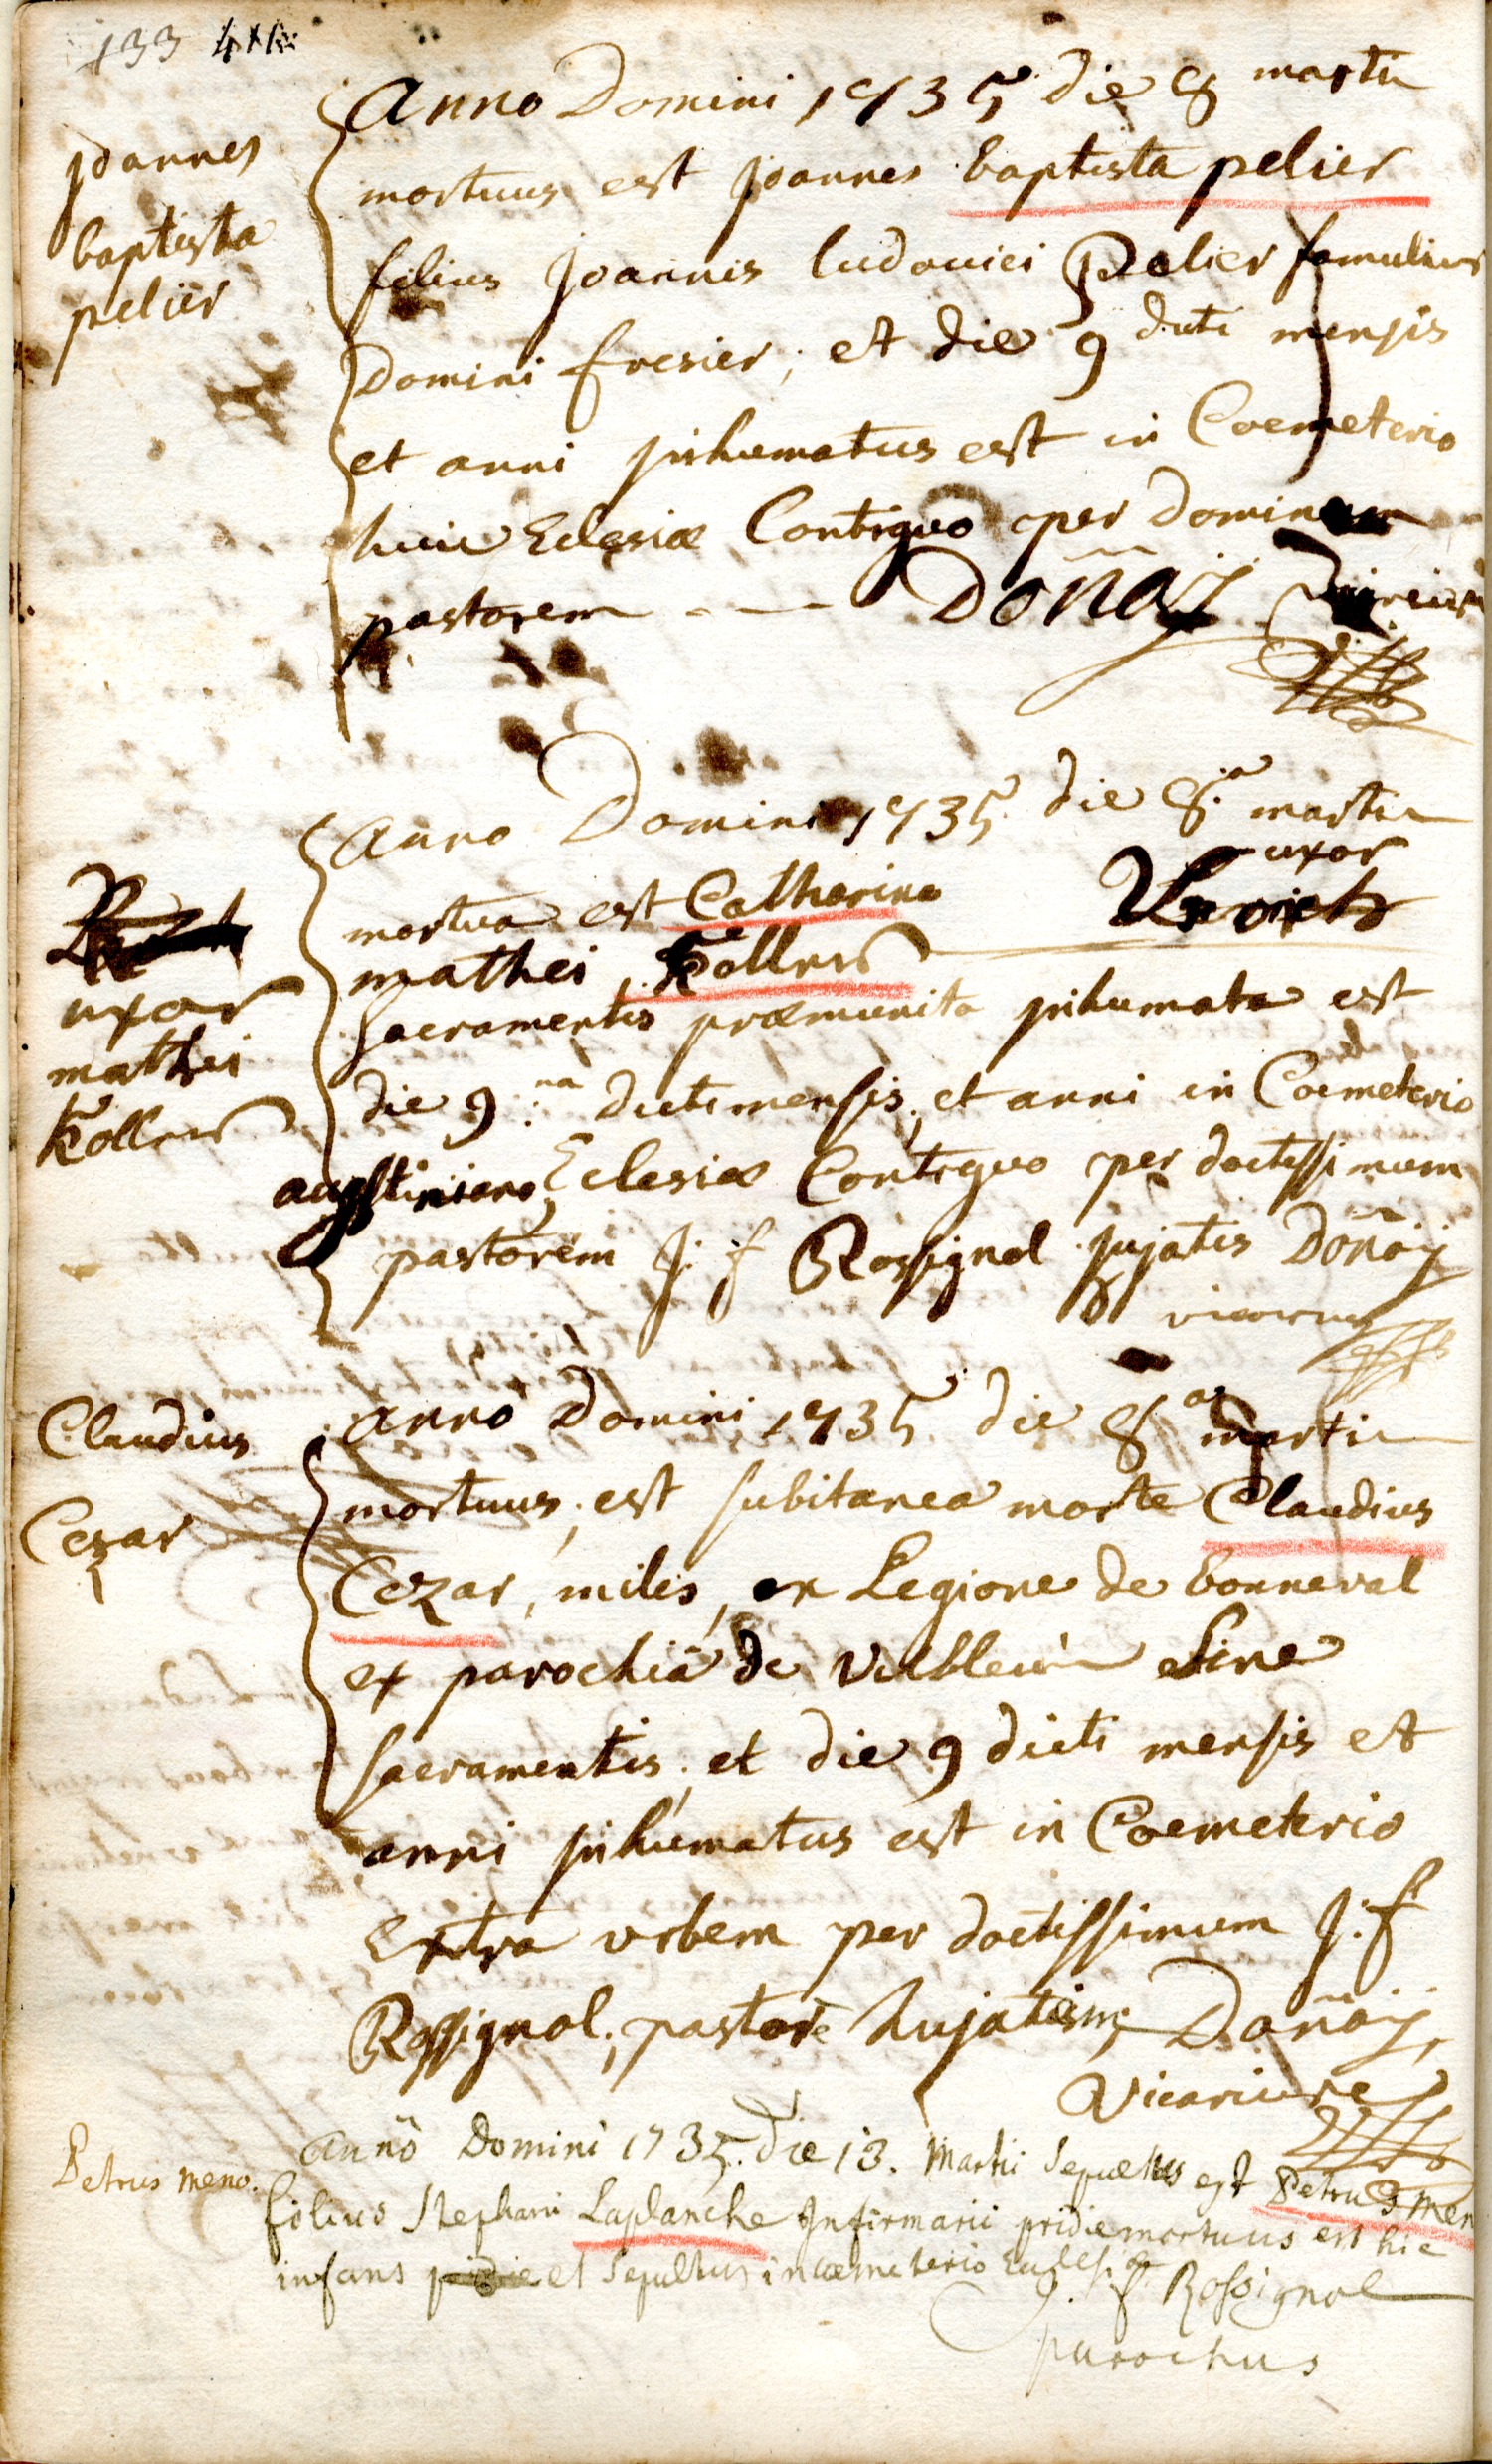 133
Joannes
baptista
pelier
Anno Domini 1735 die 8 martii
mortuus est Joannes baptista pelier
filius Joannis ludovici Pelier famulus
Domini fresier, et die 9 dicti mensis
et anni inhumatus est in Coemeterio
huic Eclesiæ Contiguo per dominum
pastorem Doñay
uxor
mathei
Koller
anno Domini 1735 die 8.a martii
mortua est Catharina uxor
mathei Koller
sacramentis præmunita inhumata est
die 9.na dicti mensis et anni in Coemeterio
augstiniano Eclesiæ Contiguo per doctissimum
pastorem J: f Rossignol hujatis Doñaÿ
vicarius
Claudius
Cezar
anno Domini 1735 die 8a martii
mortuus est subitanea morte Claudius
Cezar, miles, ex Legione de bonneval
ex parochiâ de sine
sacramentis. et die 9 dicti mensis et
anni inhumatus est in Coemeterio
Extra urbem per doctissimum J: f
Rossignol, pastorē hujatem, Doñaÿ,
Vicarius
Petrus meno.
Anno Domini 1735. Die 13. Martii Sepultus est Petrus Men
filius Stephani Laplanche Infirmarii pridie mortuus est hic
infans et Sepultus in coemeterio
J. f Rossignol
parochus